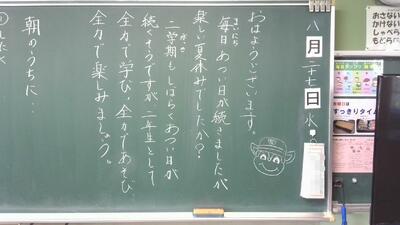 おさない
かけない
しゃべら
もどら
すっきりタイム
八月二十七日水
おはようございます。
まいにち
毎日あつい日が続きましたが
楽しい夏休みでしたか?
がっき
二学期もしばらくあつい日が
続くそうですが二年生として
全力で学び、全力であそび
全力で楽しみましょう。
朝のうちに…